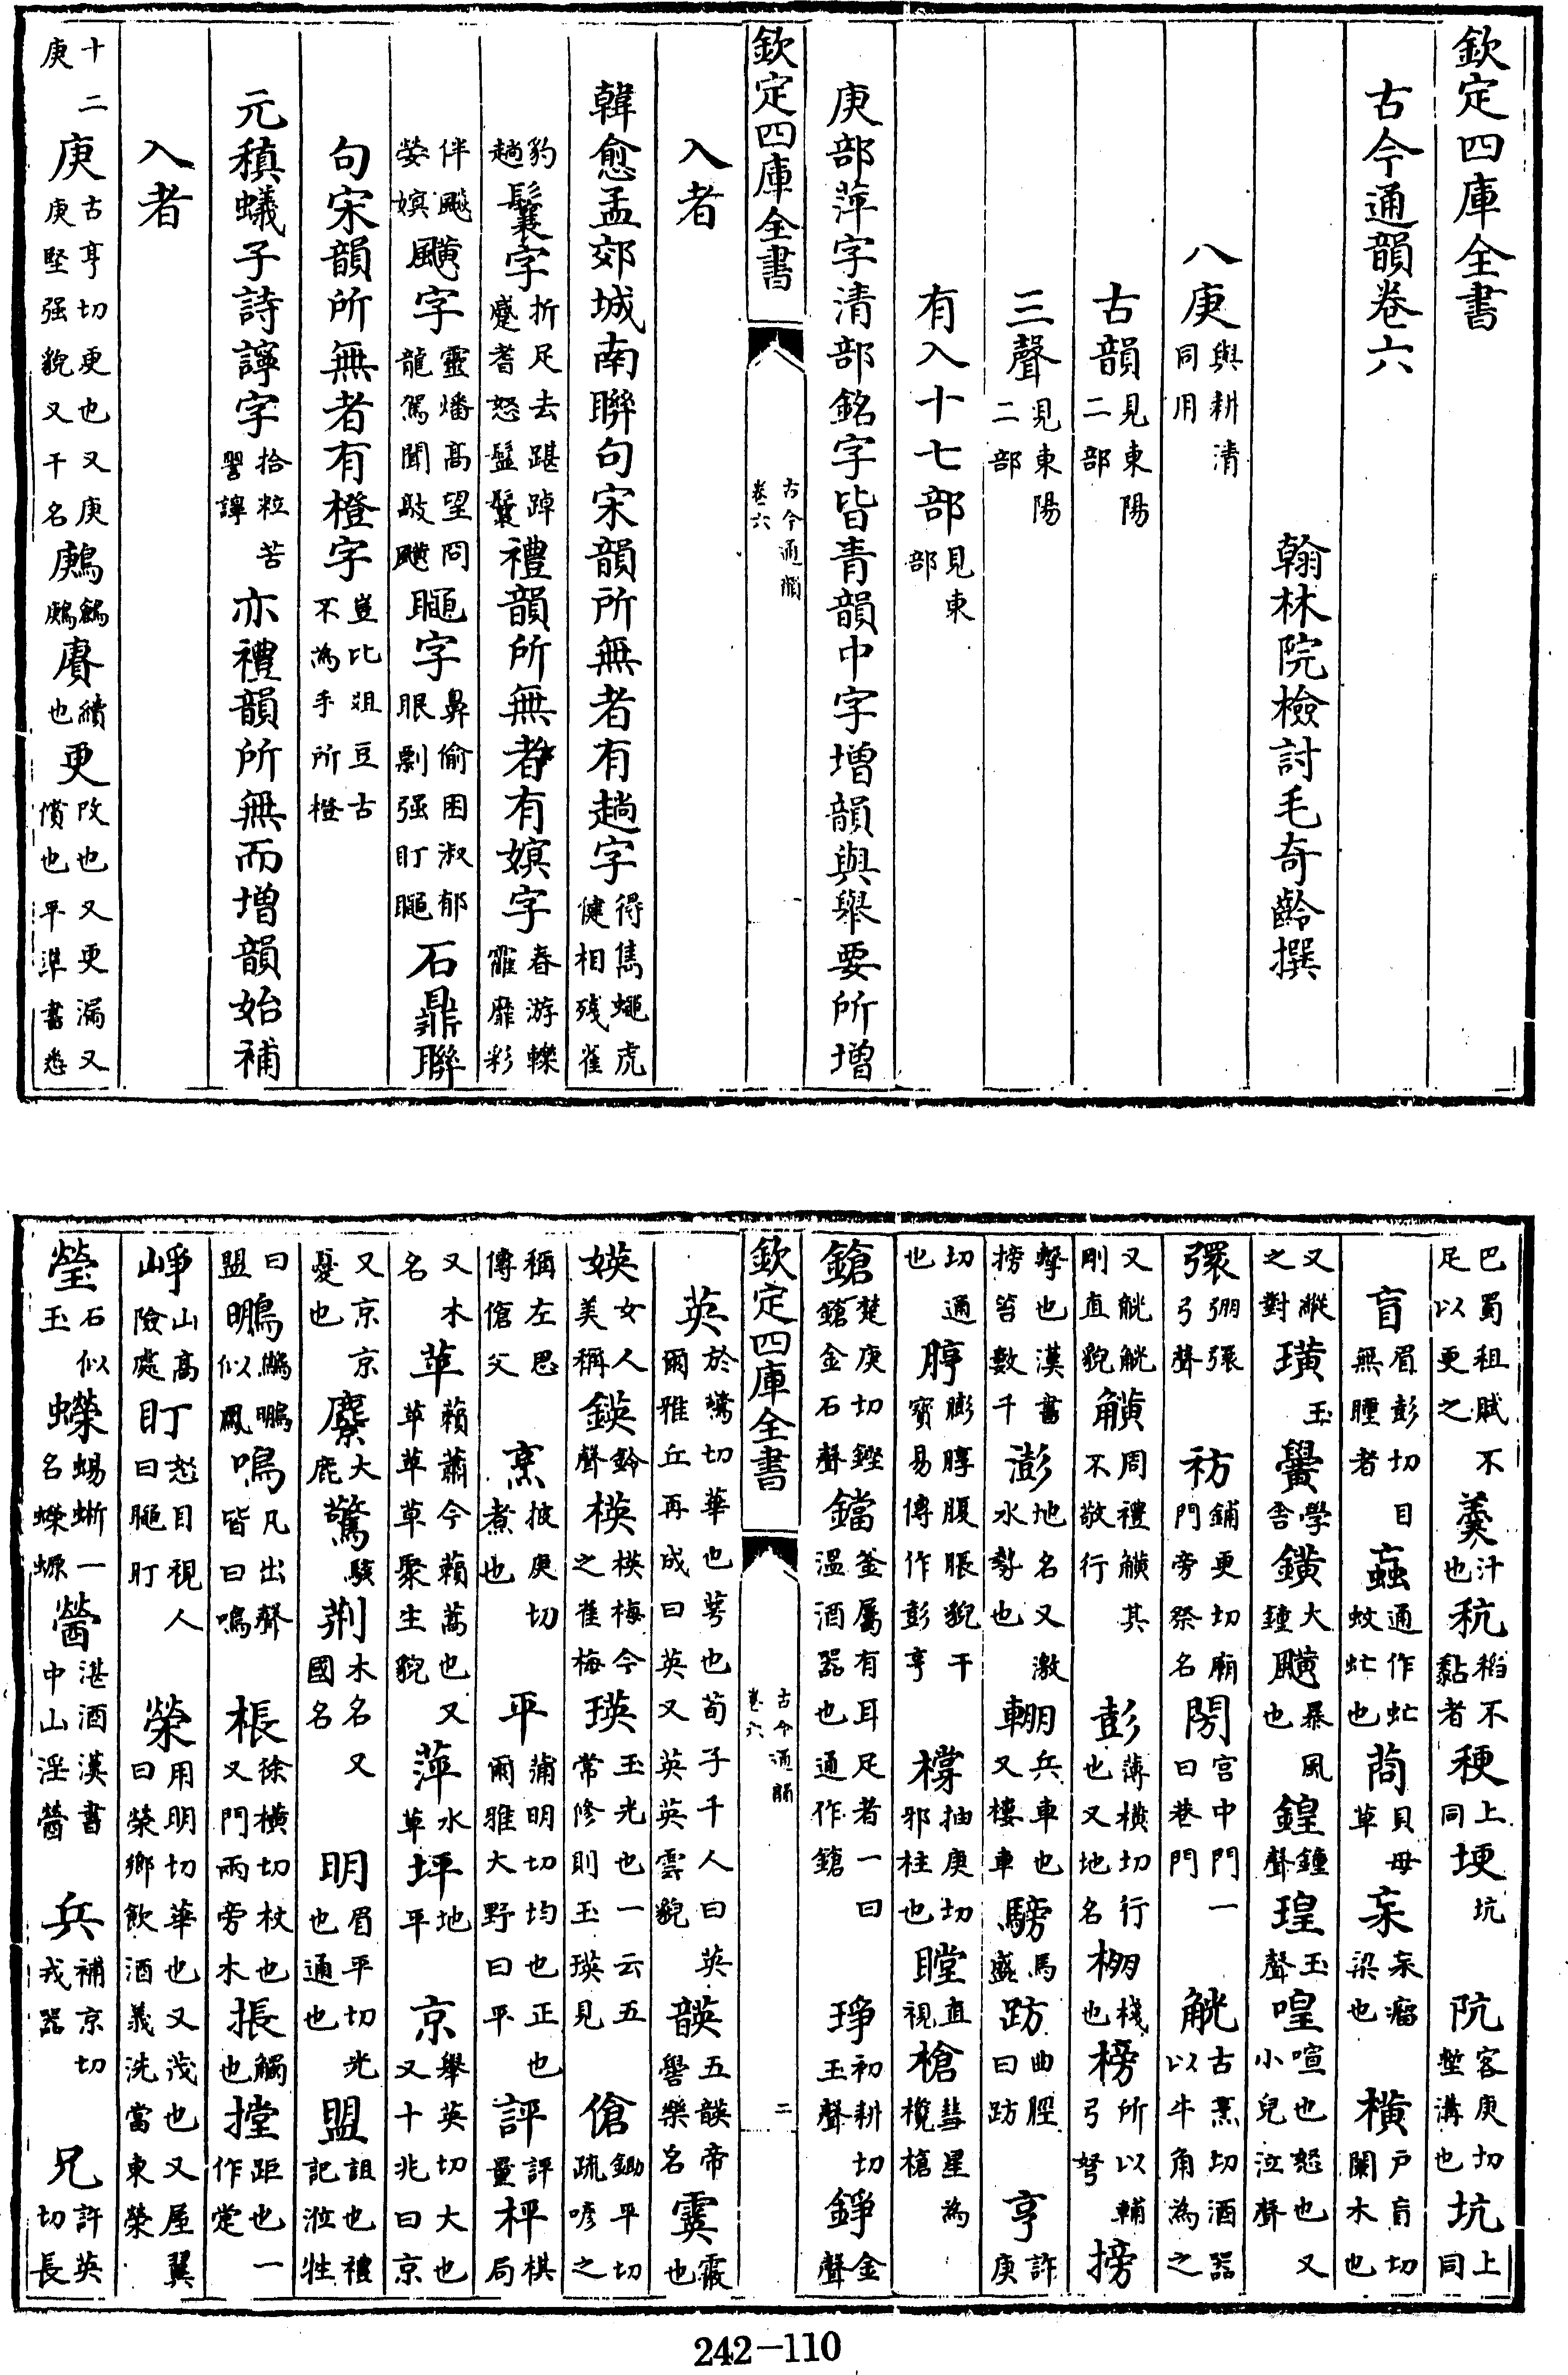 欽定四庫全書
古今通韻卷六
翰林院檢討毛奇齡撰
八庚與耕清同用
古韻見東陽二部
三聲見東陽二部
有入十七部見東部
庚部萍字清部銘字皆青韻中字增韻與舉要所增
欽定四庫全書
古今通韻
卷六
入者
韓愈孟郊城南聯句宋韻所無者有趟字得雋蠅虎健相殘雀
豹趟鬤字折足去踸踔蹙耆怒䰐鬤禮韻所無者有嫇字春游轢靡彩
伴颷嫈嫇䬖字靈燔高望冏龍駕聞敲䬖䁫字鼻偷困淑郁眠剽强盯䁫石鼎聯
句宋韻所無者有橙字豈比俎豆古不為手所橙
元稹蟻子詩諻字拾粒苦亦禮韻所無而增韻始補
入者
十二庚
庚古亨切更也又庚庚堅强貌又干名鶊鶬鶊賡續也更改也又更漏又償也平準書悉
巴蜀租賦不足以更之羮汁也秔稻不黏者稉上同埂坑阬客庚切塹溝也坑上同
盲眉彭切目無瞳者蝱通作虻蚊虻也莔貝母草杗杗廇梁也橫戶盲切闌木也
又縱之對璜玉黌學舍鐄大鐘䬖暴風也鍠鐘聲瑝玉聲喤喧也怒也又小兒泣聲
彋弸彋弓聲祊鋪更切廟門旁祭名閍宮中門一曰巷門觥古橫切酒器以牛角為之
又觥觥剛直貌觵周禮觵其不敬行彭薄橫切行也又地名棚棧也榜所以輔弓弩搒
擊也漢書搒笞數千澎地名又激水勢也輣兵車也又樓車騯馬盛趽曲脛曰趽亨許庚
切通也脝膨脝腹脹貌干寶易傳作彭亨樘抽庚切邪柱也瞠直視槍彗星為欃槍
鎗楚庚切鏗鎗金石聲鐺釜屬有耳足者一曰溫酒器也通作鎗琤初耕切玉聲錚金聲
欽定四庫全書
古今通韻
卷六
二
英於驚切華也萼也荀子千人曰英爾雅丘再成曰英又英英雲貌韺五韺帝嚳樂名霙霰也
媖女人美稱鍈鈴聲楧楧梅今之雀梅瑛玉光也一云五常修則玉瑛見傖鋤平切疏嗲之
稱左思傳傖父烹披庚切煮也平蒲明切均也正也爾雅大野曰平評評量枰棋局
又木名苹藾蕭今藾蒿也又苹苹草聚生貌萍水草坪地平京舉英切大也又十兆曰京
又京京憂也麖大鹿驚駭荆木名又國名明眉平切光也通也盟詛也禮記涖牲
曰盟鵬鷭鵬似鳳鳴凡出聲皆曰鳴棖徐橫切杖也又門兩旁木振觸也摚距也一作定
崢山高險處盯怒目視人曰䁫盯榮用明切華也又茂也又屋翼曰榮鄉飲酒義洗當東榮
瑩石似玉蠑蜥蜴一名蠑螈醟湛酒漢書中山淫醟兵補京切戎器兄許英切長
242-110